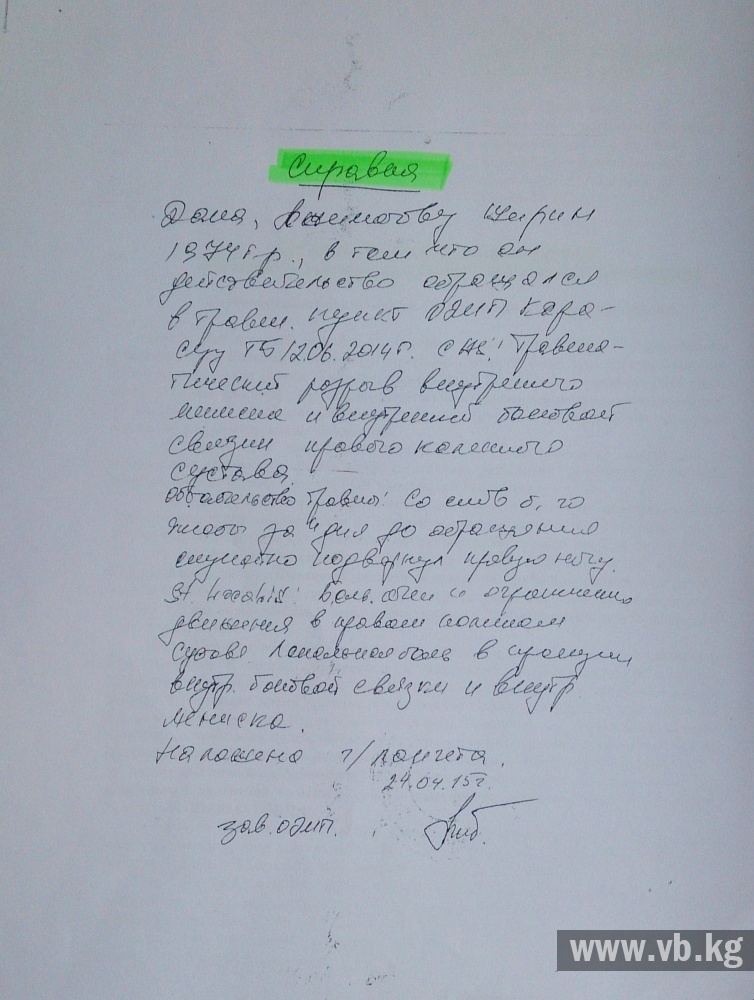 Справка
Дана, Айтматову
1974 г.р., в том что он
действительство обращался
в травм. пункт ОМП Кара-
Суу ТБ 12.06.2014г. с Ds: Травма-
тический разрыв внутреннего
мениска и внутренней боковой
связки правого коленного
сустава.
травмы: Со слов б-го
за дня до обращения
случайно подвернул правую ногу.
St. localis: и ограничено
движения в правом коленном
суставе. Локальная боль в проекции
внутр. боковой связки и внутр
мениска.
Наложена г/лонгета.
24.04.15г.
зав.
www.vb.kg